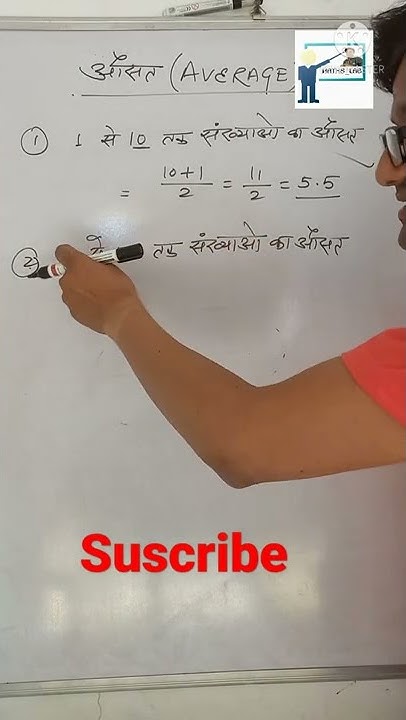 औसत (AVERAGE)
MATHS LAB
① 1 से 10 तक संख्याओ का औसत
= 10+1/2 = 11/2 = 5.5
② से तक संख्याओ का औसत
Suscribe